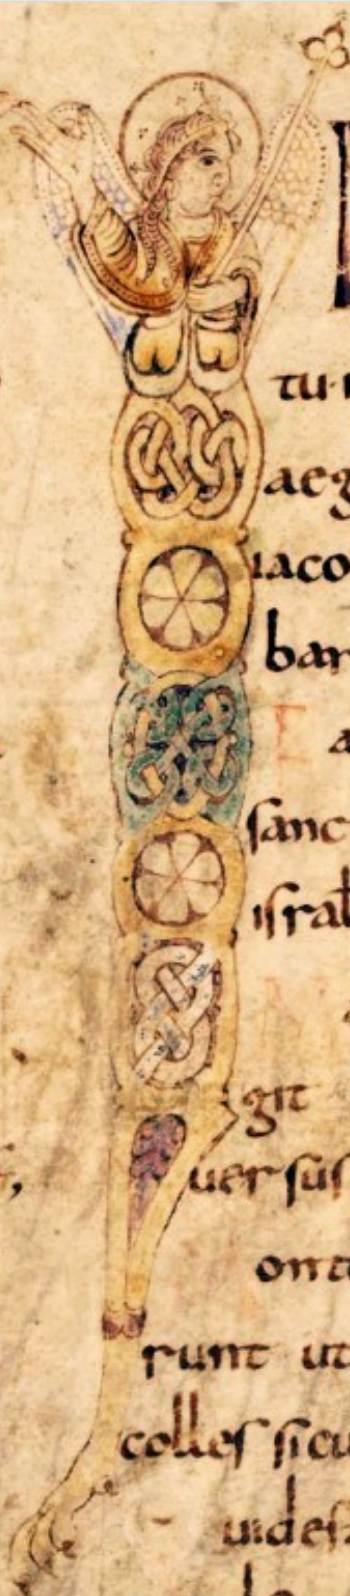 tu·
aeg
iaco
bar
a
sanc
israh
git
uersus
ont
runt ut
colles sicu
uides